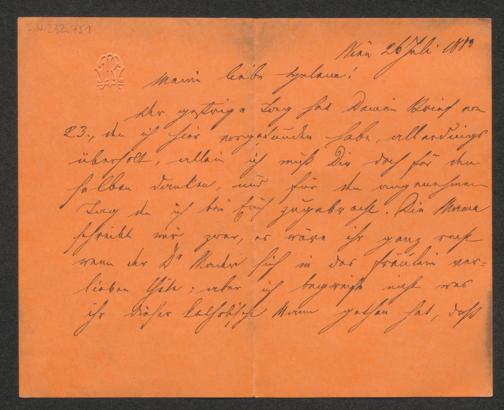 I.N. 232.751
Wien 26 Juli 1883
Meine liebe Helene!
Der gestrige Tag hat Deinen Brief vom
23., den ich hier vorgefunden habe, allerdings
überholt, allein ich muß Dir doch für den
selben danken, und für den angenehmen
Tag den ich bei Euch zugebracht. Die Mama
schreibt mir zwar, es wäre ihr ganz recht
wenn der Dr sich in das Fräulein ver-
lieben thäte; aber ich begreife nicht was
ihr dieser Mann gethan hat, daß